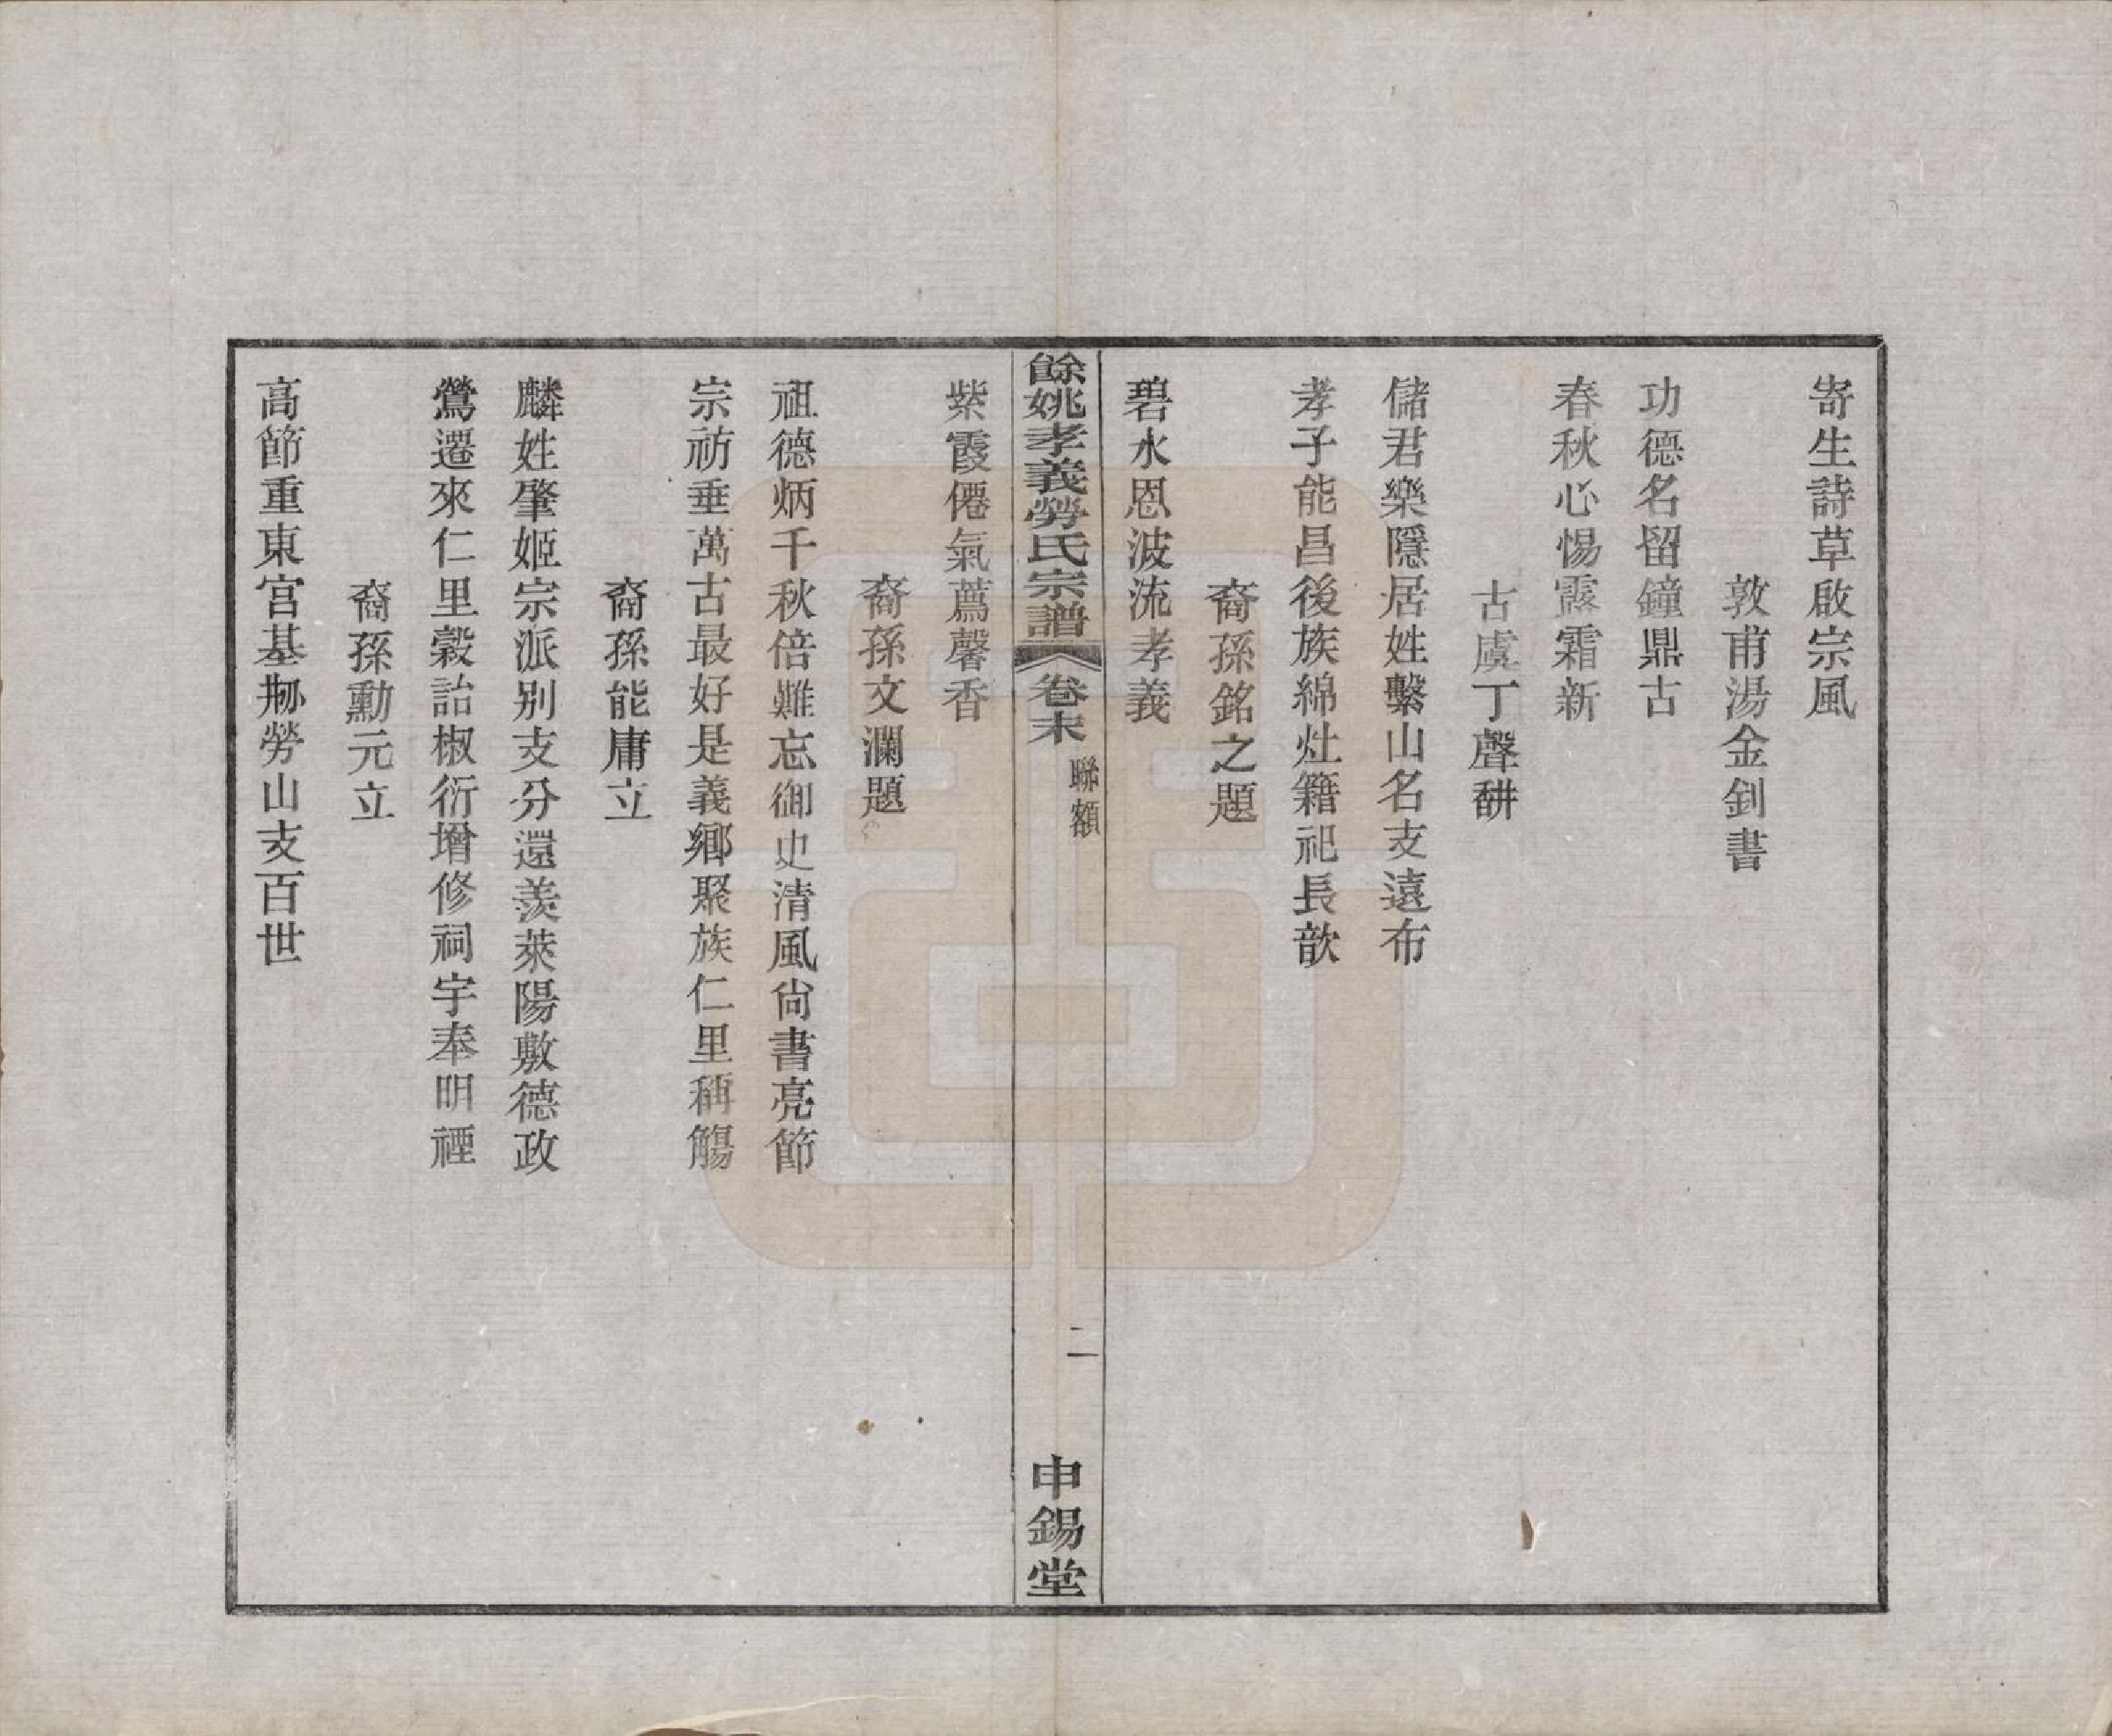 寄生詩草啟宗風
敦甫湯金釗書
功德名留鐘鼎古
春秋心惕露霜新
古虞丁聲𦔳
儲君樂隱居姓繫山名支遠布
孝子能昌後族綿灶籍祀長歆
裔孫銘之題
碧水恩波流孝義
餘姚孝義勞氏宗譜 卷末 聯額 二 申錫堂
紫霞僊氣薦馨香
裔孫文瀾題
祖德炳千秋倍難忘御史清風尙書亮節
宗祊垂萬古最好是義鄉聚族仁里稱觴
裔孫能庸立
麟姓肇姬宗派別支分還羨萊陽敷德政
鶯遷來仁里穀詒椒衍增修祠宇奉明禋
裔孫勳元立
高節重東宮基刱勞山支百世